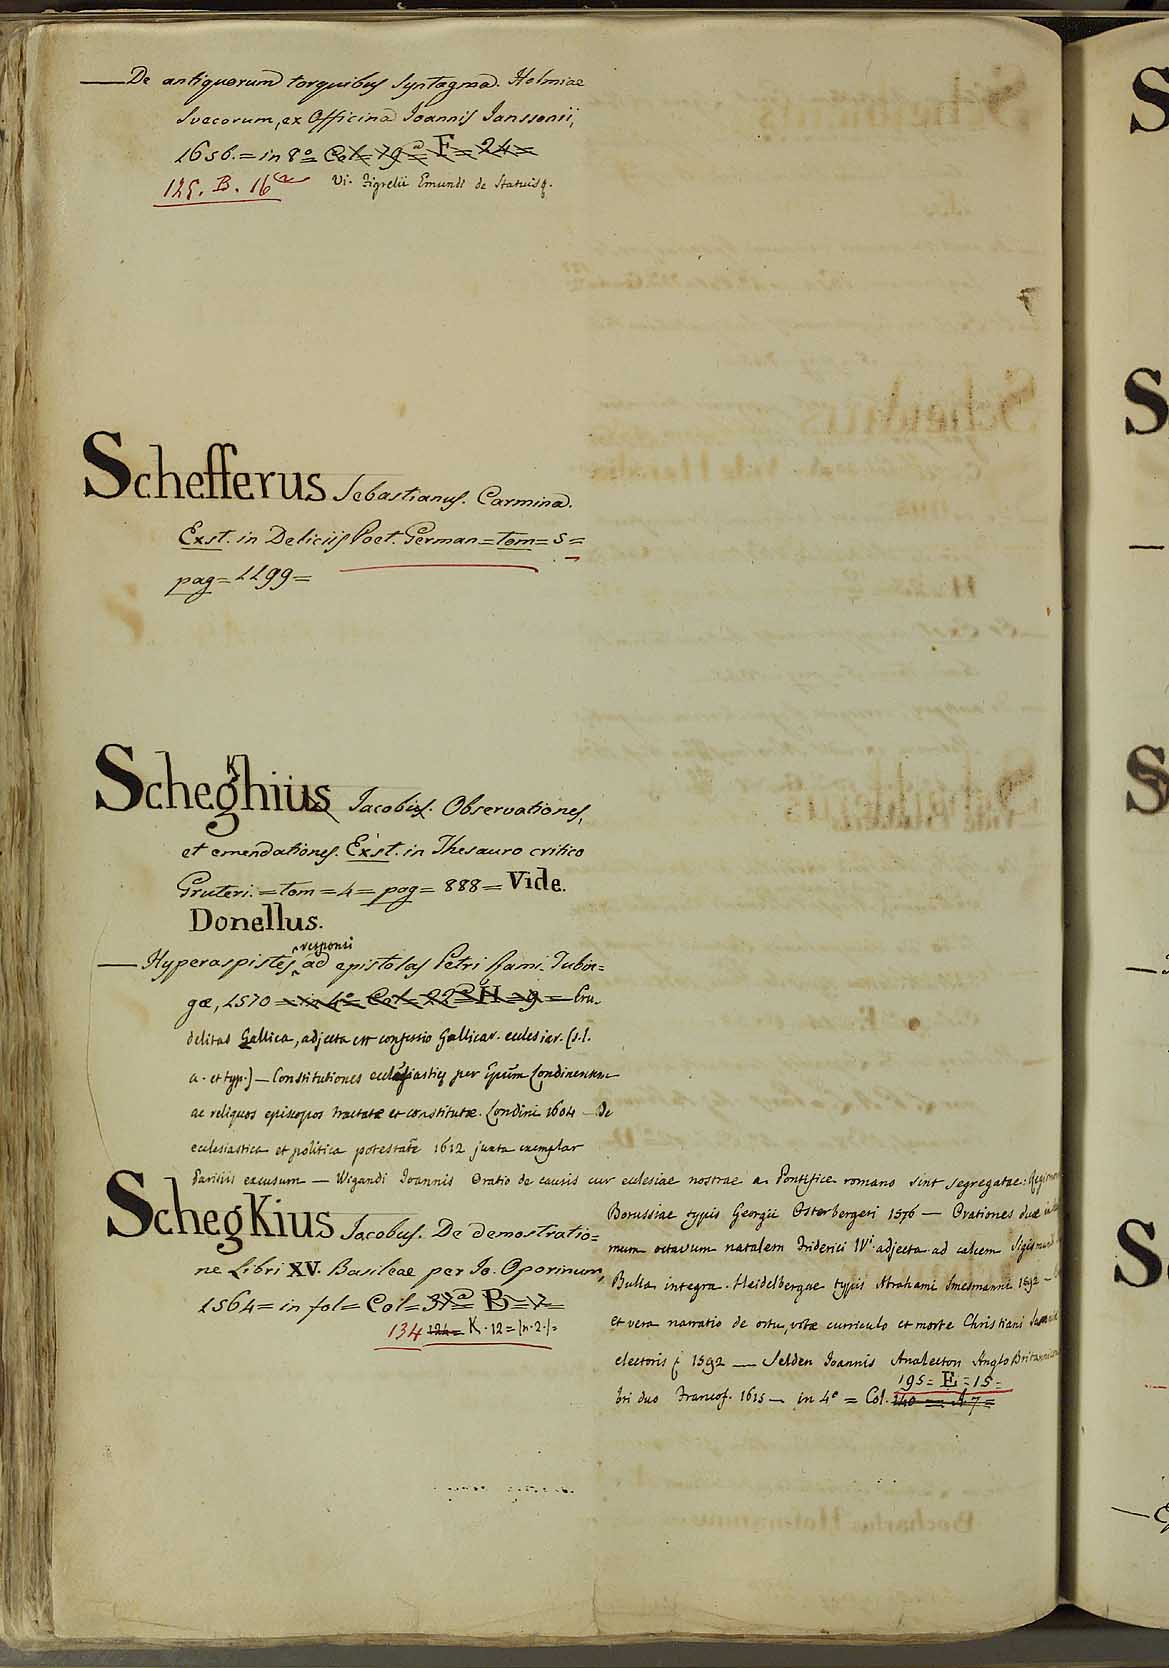 — De antiquorum torquibus Syntagma. Holmiae
Svecorum, ex Officina Joannis Janssonii,
1656. = in 8º = Col = 79ª = F = 24 =
125. B. 16
Vi. Figrelii Emundi de Statuis
Schefferus Sebastianus. Carmina.
Exst. in Deliciis Poet. German = tom = 5 =
pag = 1199 =
K
Scheghius Jacobus. Observationes,
et emendationes. Exst. in Thesauro critico
Gruteri. = tom = 4 = pag = 888 = Vide.
Donellus.
responsi
— Hyperaspistes ad epistolas Petri Rami. Tubin=
gæ, 1570 = in 4º = Col = 22ª = H = 9 = — Cru-
delitas Gallica, adjecta est confessio Gallicar. ecclesiar. (s.l.
a. et typ.) — Constitutiones ecclesiasticę per Ep̄um Londinensem
ac reliquos episcopos tractatæ et constitutæ. Londini 1604 — De
ecclesiastica et politica potestate 1612 juxta exemplar
Parisiis excusum — Wigandi Joannis Oratio de causis cur ecclesiae nostrae a Pontifice romano sint segregatae:
Borussiae typis Georgii Osterbergeri 1576 — Orationes duæ
mum octavum natalem Friderici IV. adjecta ad calcem
Bulla integra. Heidelbergae typis Abrahami Smesmanni 1592 —
et vera narratio de ortu, vitæ curriculo et morte Christiani
electoris 1592 — Selden Joannis Analecton Anglo
195 = E = 15 =
bri duo Francof. 1615 — in 4º = Col. 140 = A 7 =
SchegKius Jacobus. De demostratio=
ne Libri XV. Basileae per Jo. Oporinum,
1564 = in fol = Col = 37ª = B = 7 =
134 124 = K. 12 = (n. 2.) =